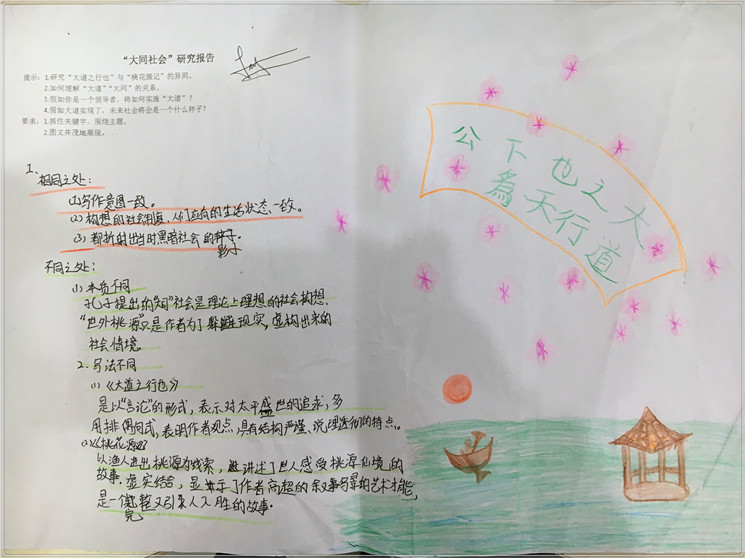 “大同社会”研究报告
提示：1.研究“大道之行也”与“桃花源记”的异同。
2.如何理解“大道”“大同”的关系。
3.假如你是一个领导者，将如何实施“大道”？
4.假如大道实现了，未来社会将会是一个什么样子？
要求：1.抓住关键字，围绕主题。
2.图文并茂地展现。
1.
相同之处：
(1)写作意图一致。
(2)构想的社会制度，人们应有的生活状态一致。
(3)都折射出当时黑暗社会的影子。
不同之处：
(1)本质不同
孔子提出的“大同”社会是理论上理想的社会构想，
“世外桃源”只是作者为了躲避现实，虚构出来的
社会情境
2.写法不同
(1)《大道之行也》
是以“言论”的形式，表示对太平盛世的追求，多
用排偶句式，表明作者观点，具有结构严谨、说理透彻的特点。
(2)《桃花源记》
以渔人进出桃源为线索，讲述了世人感受桃源仙境的
故事。虚实结合，显示了作者高超的叙事写景的艺术才能，
是一完整又引人入胜的故事。
大道之行也天下為公